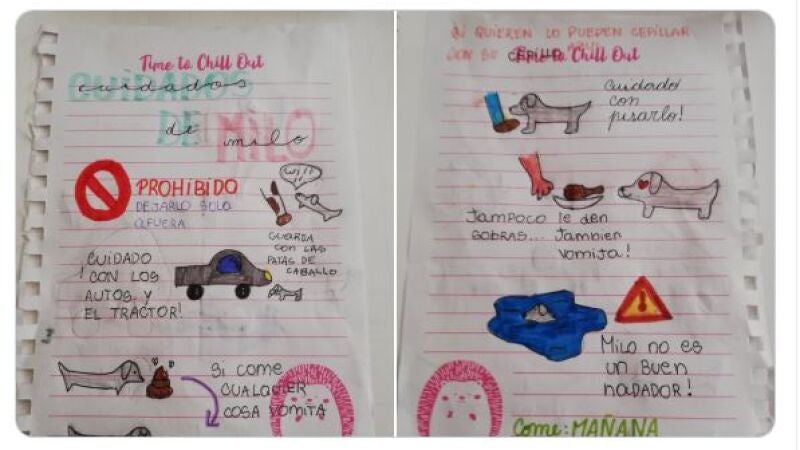 Time to Chill Out
CUIDADOS
cuidados
DE MILO
de milo
PROHÍBIDO
DEJARLO SOLO
AFUERA
GUARDA
CON LAS
PATAS DE
CABALLO
CUIDADO
! CON LOS
AUTOS Y
EL TRACTOR!
Si come
CUALQUIER
COSA VOMITA
SI QUIEREN LO PUEDEN CEPILLAR
CON SU CEPILLO
Time to Chill Out
Cuidado
con
pisarlo!
TAMPOCO le den
SOBRAS... Tambien
vomita!
Milo no es
un Buen
nadador!
Come: MAÑANA